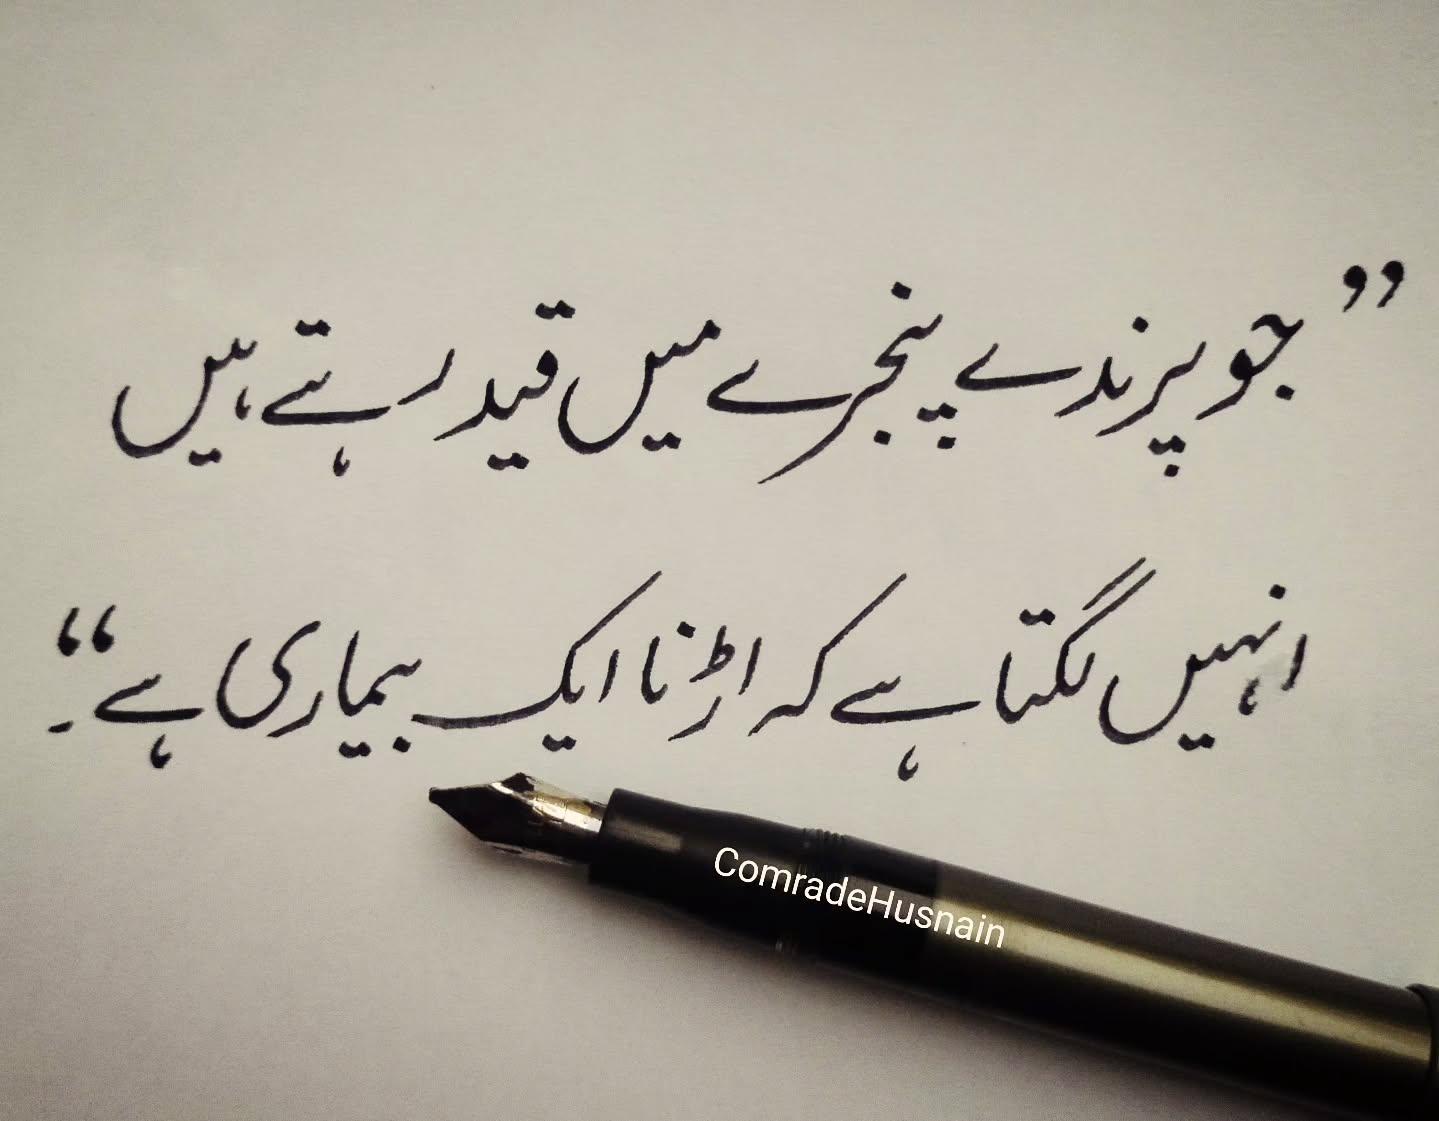 ”جو پرندے پنجرے میں قید رہتے ہیں
انہیں لگتا ہے کہ اڑنا ایک بیماری ہے“۔
ComradeHusnain